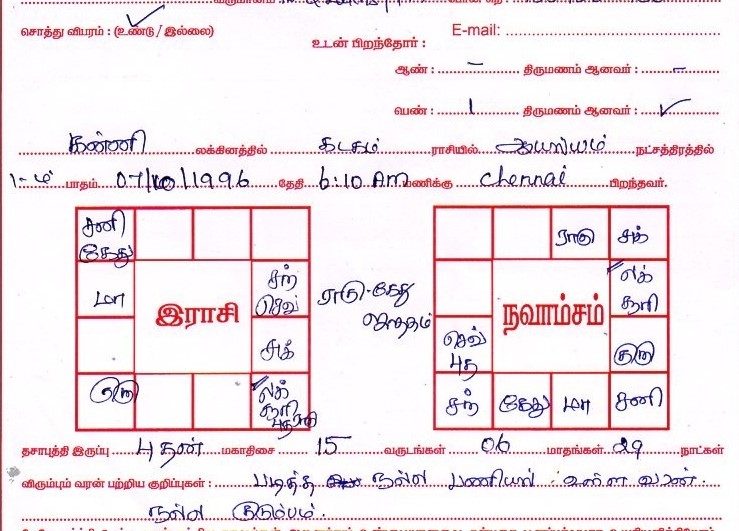 சொத்து விபரம் : (உண்டு / இல்லை)
உடன் பிறந்தோர் :
E-mail:
ஆண் : – திருமணம் ஆனவர் : –
பெண் : 1 திருமணம் ஆனவர் : ✓
கன்னி லக்கினத்தில் கடகம் ராசியில் ஆயில்யம் நட்சத்திரத்தில்
1-ம் பாதம் 07/10/1996 தேதி 6:10 Am மணிக்கு chennai பிறந்தவர்.
சனி
கேது
மா
இராசி
சந்
செவ்
சுக்
குரு
லக்
சூரி
புதன்
ராகு-கேது
ஜாதகம்
ராகு
சுக்
நவாம்சம்
லக்
சூரி
செவ்
புத
குரு
சந்
கேது
மா
சனி
தசாபுத்தி இருப்பு புதன் மகாதிசை 15 வருடங்கள் 06 மாதங்கள் 29 நாட்கள்
விரும்பும் வரன் பற்றிய குறிப்புகள் : படித்த நல்ல பணியில் உள்ள வரன்.
நல்ல குடும்பம்.